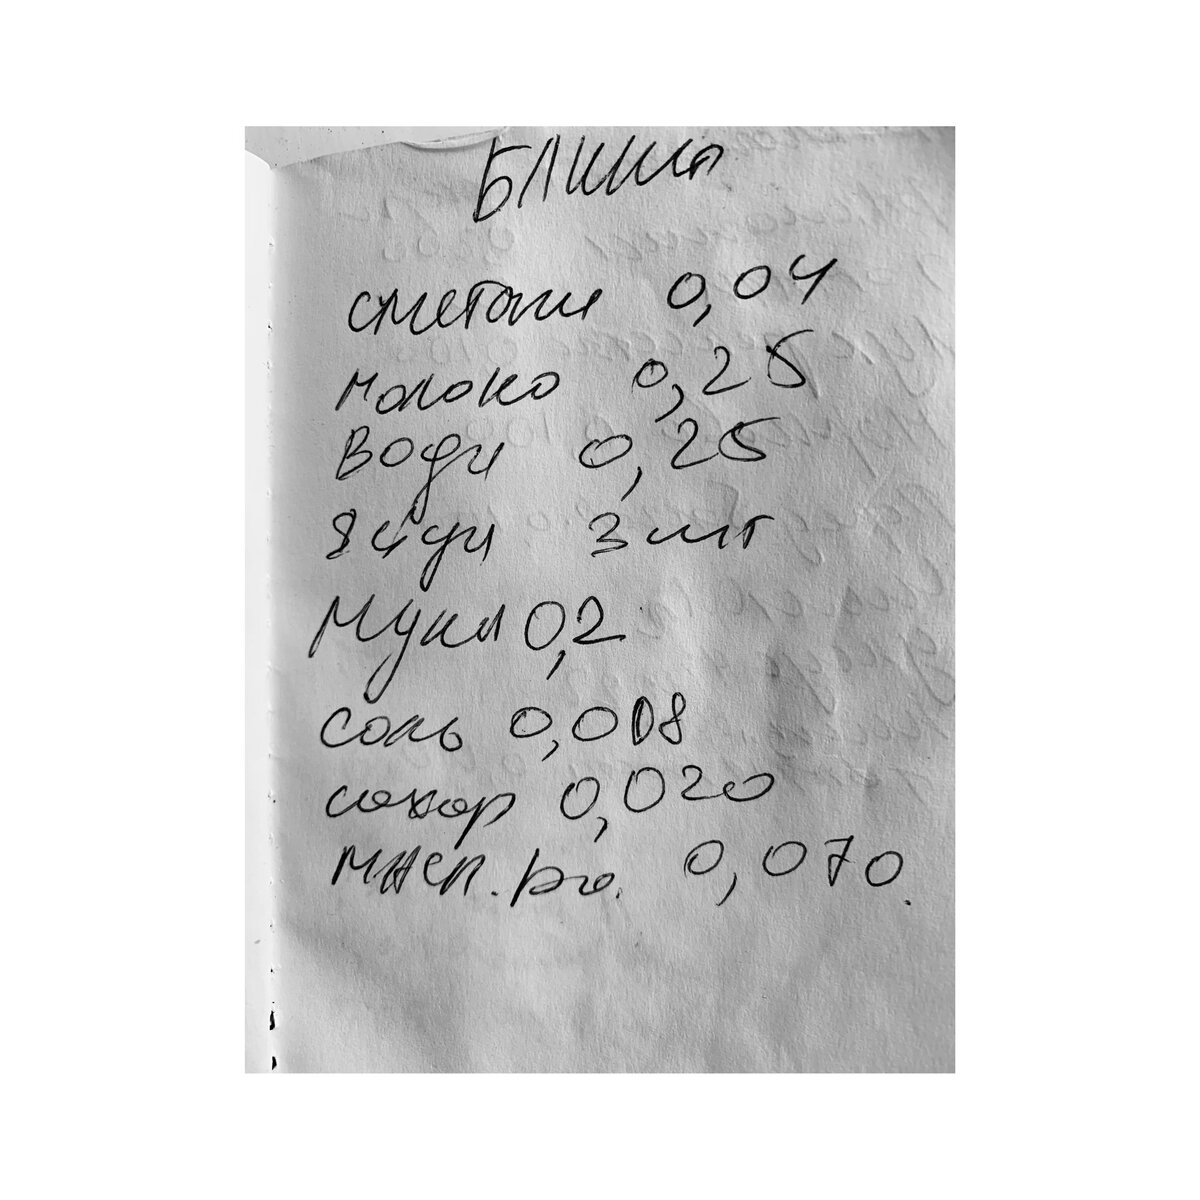 Блины
сметаны 0,04
молоко 0,25
воды 0,25
яйца 3 шт
Мука 0,2
соль 0,008
сахар 0,020
масл. ра. 0,070.